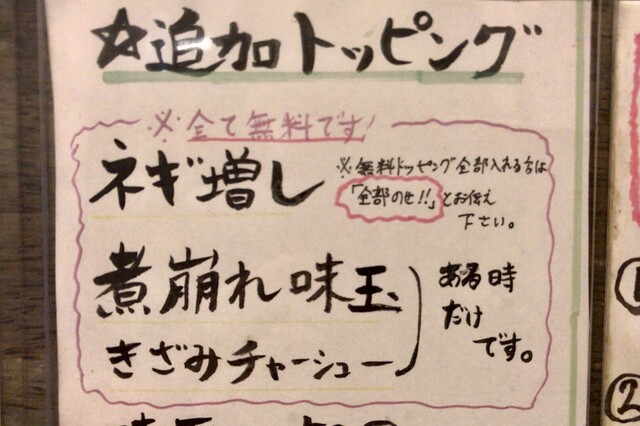 ☆追加トッピング
※全て無料です！
ネギ増し
※無料トッピング全部入れる方は
「全部のせ!!」とお伝え
下さい。
煮崩れ味玉
きざみチャーシュー
ある時
だけ
です。
①
②